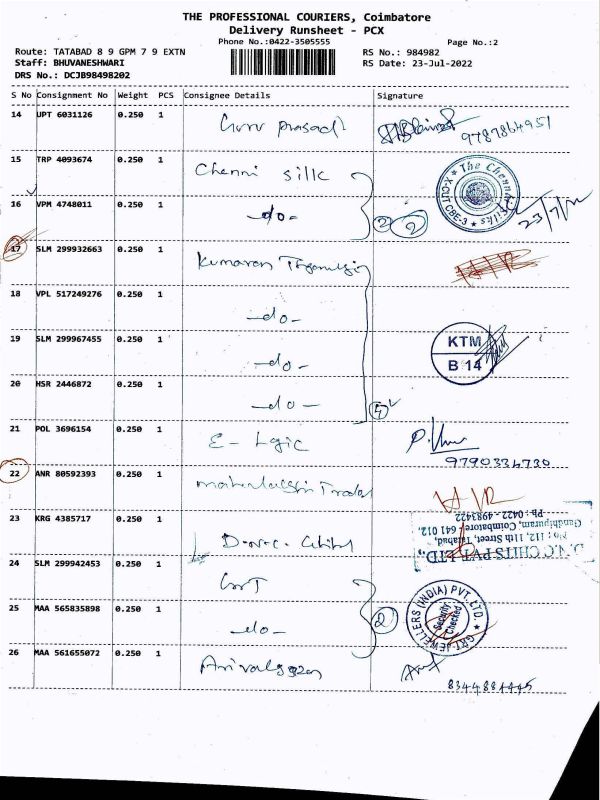 THE PROFESSIONAL COURIERS, Coimbatore
Delivery Runsheet - PCX
Phone No.:0422-3505555
Page No.:2
Route: TATABAD 8 9 GPM 7 9 EXTN
RS No.: 984982
Staff: BHUVANESHWARI
RS Date: 23-Jul-2022
DRS No.: DCJB98498202
S No Consignment No Weight PCS Consignee Details Signature
14 UPT 6031126 0.250 1 Guru prasad
9787864951
15 TRP 4093674 0.250 1 Chenni silk
The Chennai Silks ★ X-CUT CBE-3 ★
16 VPM 4748011 0.250 1 -do- 2 2
23/7/22
17 SLM 299932663 0.250 1 Kumaran
18 VPL 517249276 0.250 1 -do-
19 SLM 299967455 0.250 1 -do-
KTM
B 14
20 HSR 2446872 0.250 1 -do-
21 POL 3696154 0.250 1 E-Logic
9790334730
22 ANR 80592393 0.250 1 mahalakshmi Trades
23 KRG 4385717 0.250 1
CHITS PVT LTD.,
No : 112, 11th Street, Tatabad,
Gandhipuram, Coimbatore - 641 012.
Ph : 0422 - 4983422
24 SLM 299942453 0.250 1 GRT
GRT JEWELLERS (INDIA) PVT. LTD. ★
Security Checked
25 MAA 565835898 0.250 1 -do- 2
26 MAA 561655072 0.250 1
8344884445